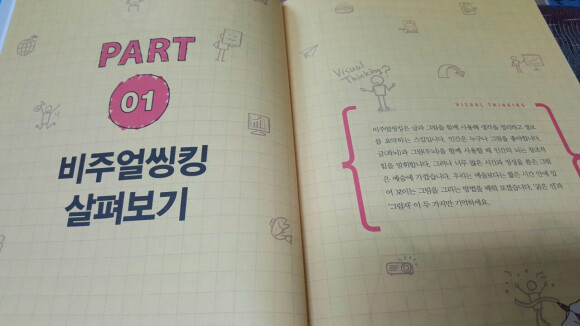 PART
01
비주얼씽킹
살펴보기
Visual
Thinking?
VISUAL THINKING
비주얼씽킹은 글과 그림을 함께 사용해 생각을 정리하고 정보
를 요약하는 스킬입니다. 인간은 누구나 그림을 좋아합니다.
글(좌뇌)과 그림(우뇌)을 함께 사용할 때 인간의 뇌는 창조적
힘을 발휘합니다. 그러나 너무 많은 시간과 정성을 쏟은 그림
은 예술에 가깝습니다. 우리는 예술보다는 짧은 시간 안에 있
어 보이는 그림을 그리는 방법을 배워 보겠습니다. '굵은 선'과
'그림자' 이 두 가지만 기억하세요.